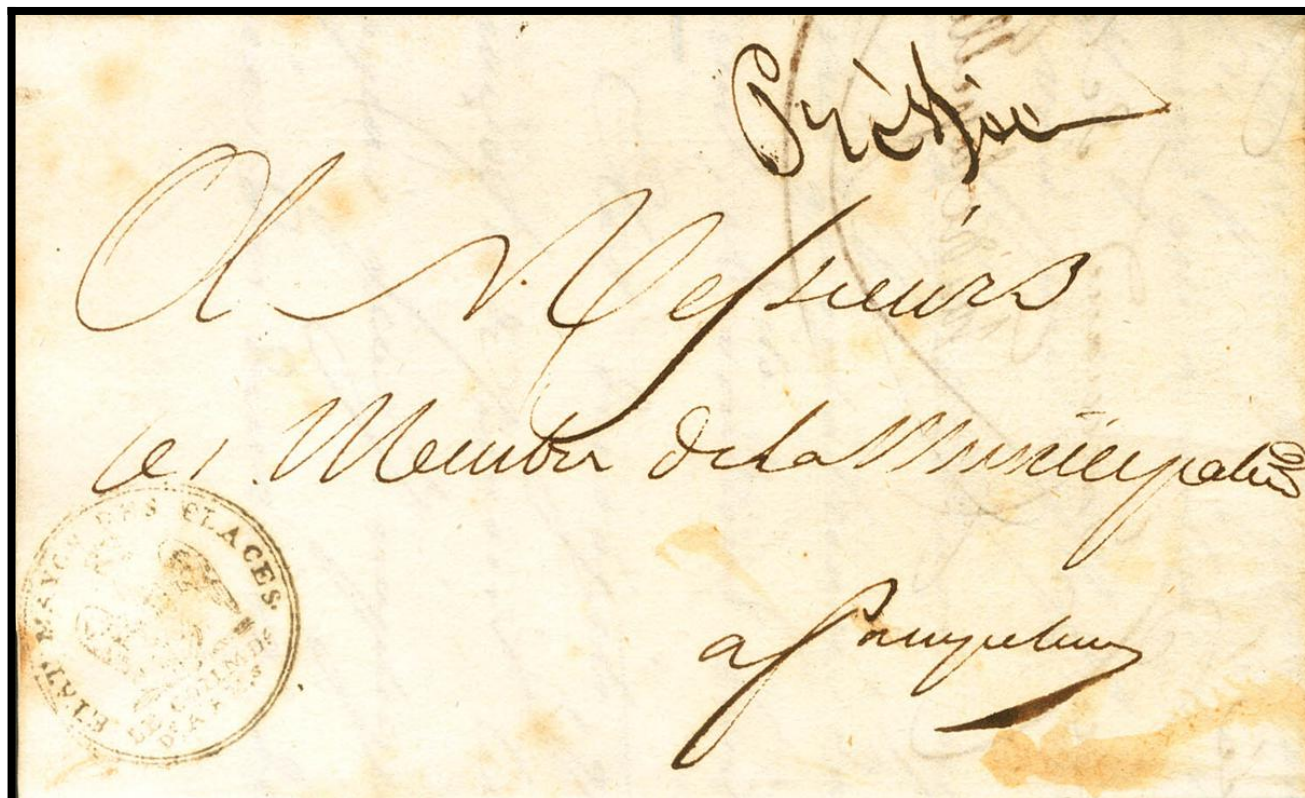 Pressée
A Messieurs
les Membres de la Municipalité
a Pampelune
ETAT MAYOR DES PLACES.
LE COMM.D
D'A